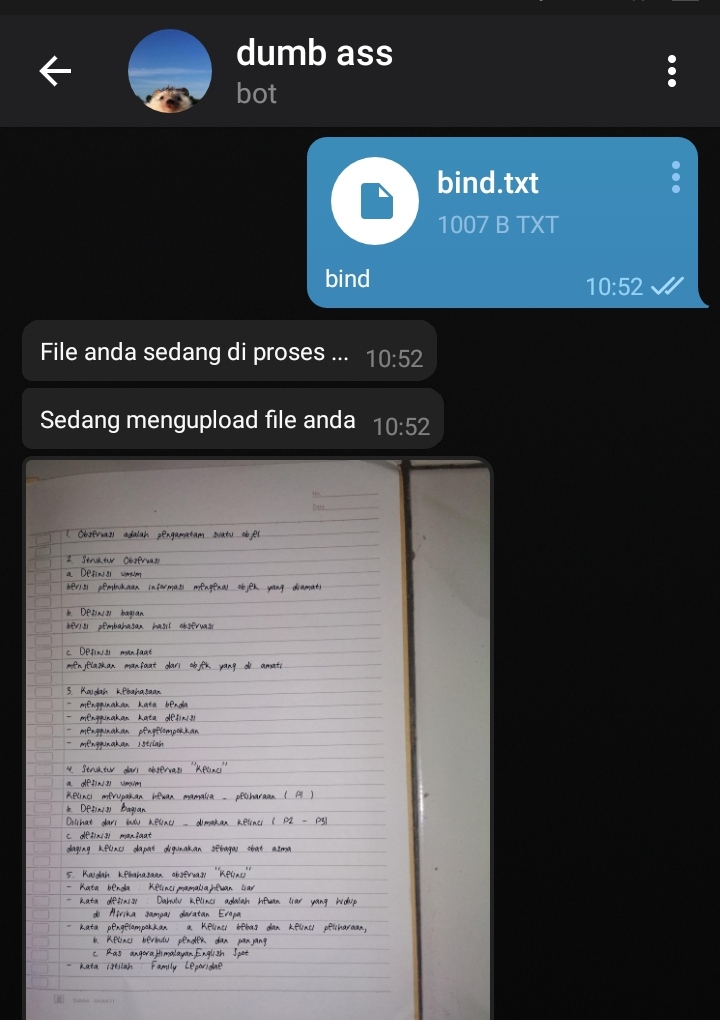 dumb ass
bot
bind.txt
1007 B TXT
bind
10:52
File anda sedang di proses ... 10:52
Sedang mengupload file anda 10:52
No
Date
1. Observasi adalah pengamatam suatu objek
2. Struktur Observasi
a. Definisi umum
berisi pembukaan informasi mengenai objek yang diamati
b. Definisi bagian
berisi pembahasan hasil observasi
c. Definisi manfaat
menjelaskan manfaat dari objek yang di amati
3. Kaidah kebahasaan
- menggunakan kata benda
- menggunakan kata definisi
- menggunakan pengelompokkan
- menggunakan istilah
4. Struktur dari observasi "Kelinci"
a. definisi umum
Kelinci merupakan hewan mamalia - peliharaan ( P1 )
b. Definisi Bagian
Dilihat dari bulu kelinci - dimakan kelinci ( P2 - P3)
c. definisi manfaat
daging kelinci dapat digunakan sebagai obat asma
5. Kaidah kebahasaan observasi "Kelinci"
- Kata benda : Kelinci,mamalia,hewan liar
- kata definisi : Dahulu kelinci adalah hewan liar yang hidup
di Afrika sampai daratan Eropa
- kata pengelompokkan : a. Kelinci bebas dan kelinci peliharaan,
b. Kelinci berbulu pendek dan panjang
c. Ras angora,Himalayan,English Spot
- kata istilah : Family Leporidae